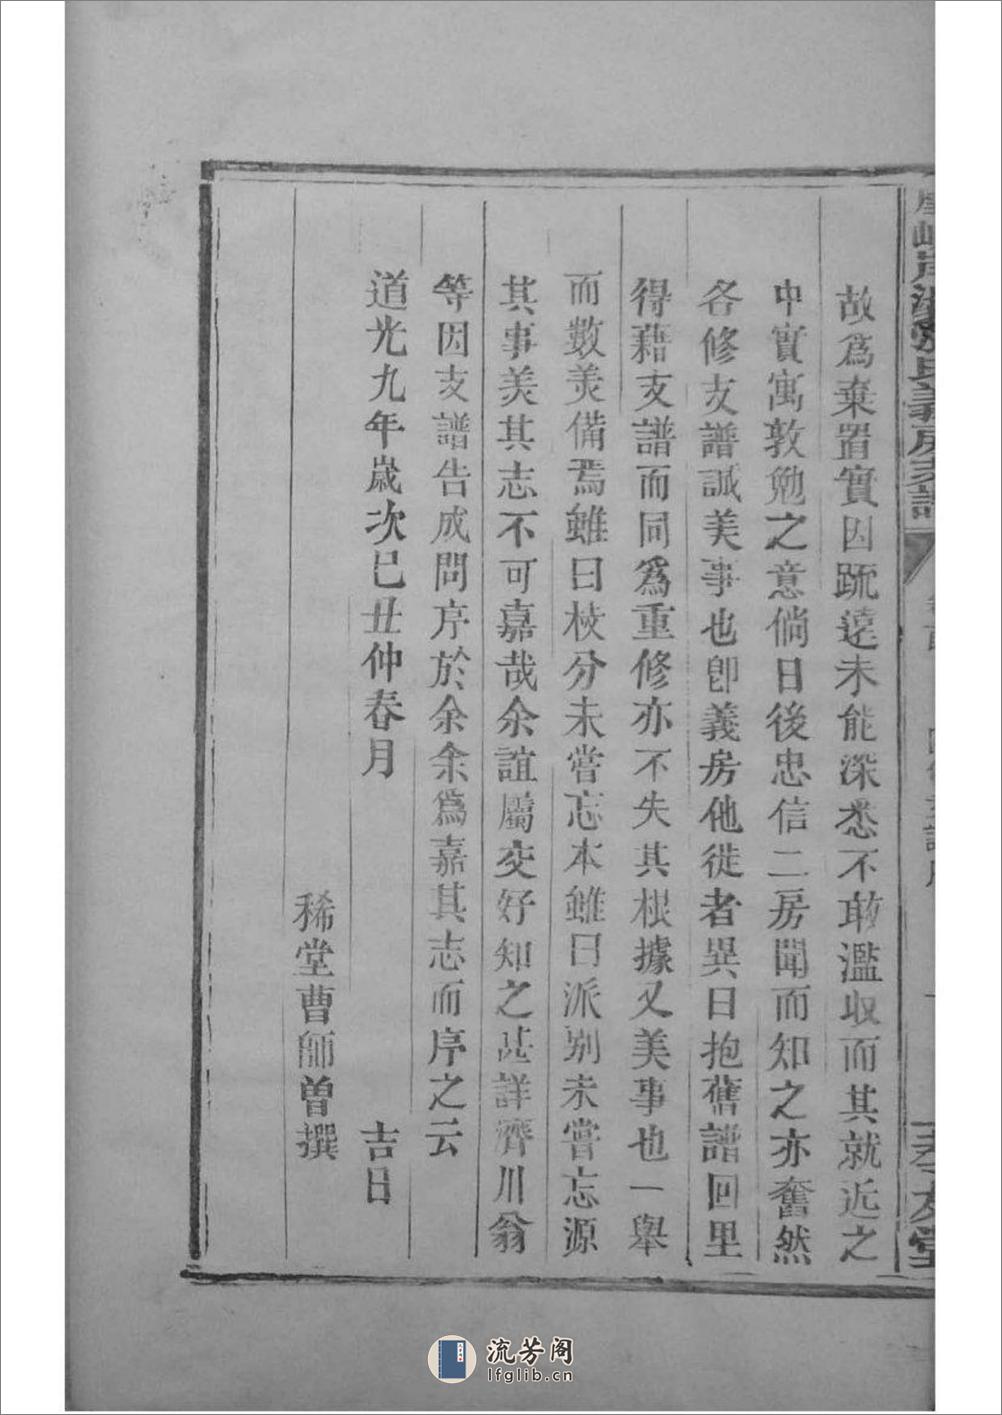 故爲棄置實因疏遠未能深悉不敢濫収而其就近之
中實寓敦勉之意倘日後忠信二房聞而知之亦奮然
各修支譜誠美事也卽義房他徙者異日抱舊譜回里
得藉支譜而同爲重修亦不失其根據又美事也一舉
而數羙備焉雖曰枝分未嘗忘本雖曰派别未嘗忘源
其事羙其志不可嘉哉余誼屬交好知之甚詳濟川翁
等因支譜告成問序於余余爲嘉其志而序之云
道光九年歲次己丑仲春月 吉日
稀堂曹師曽撰
流芳阁
lfglib.cn